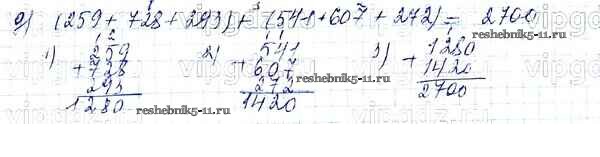 е) (259 + 728 + 293) + (541 + 607 + 272) = 2700
1) 259 + 728 293 1280
2) 541 + 607 272 1420
3) 1280 + 1420 2700
reshebnik5-11.ru
reshebnik5-11.ru
reshebnik5-11.ru